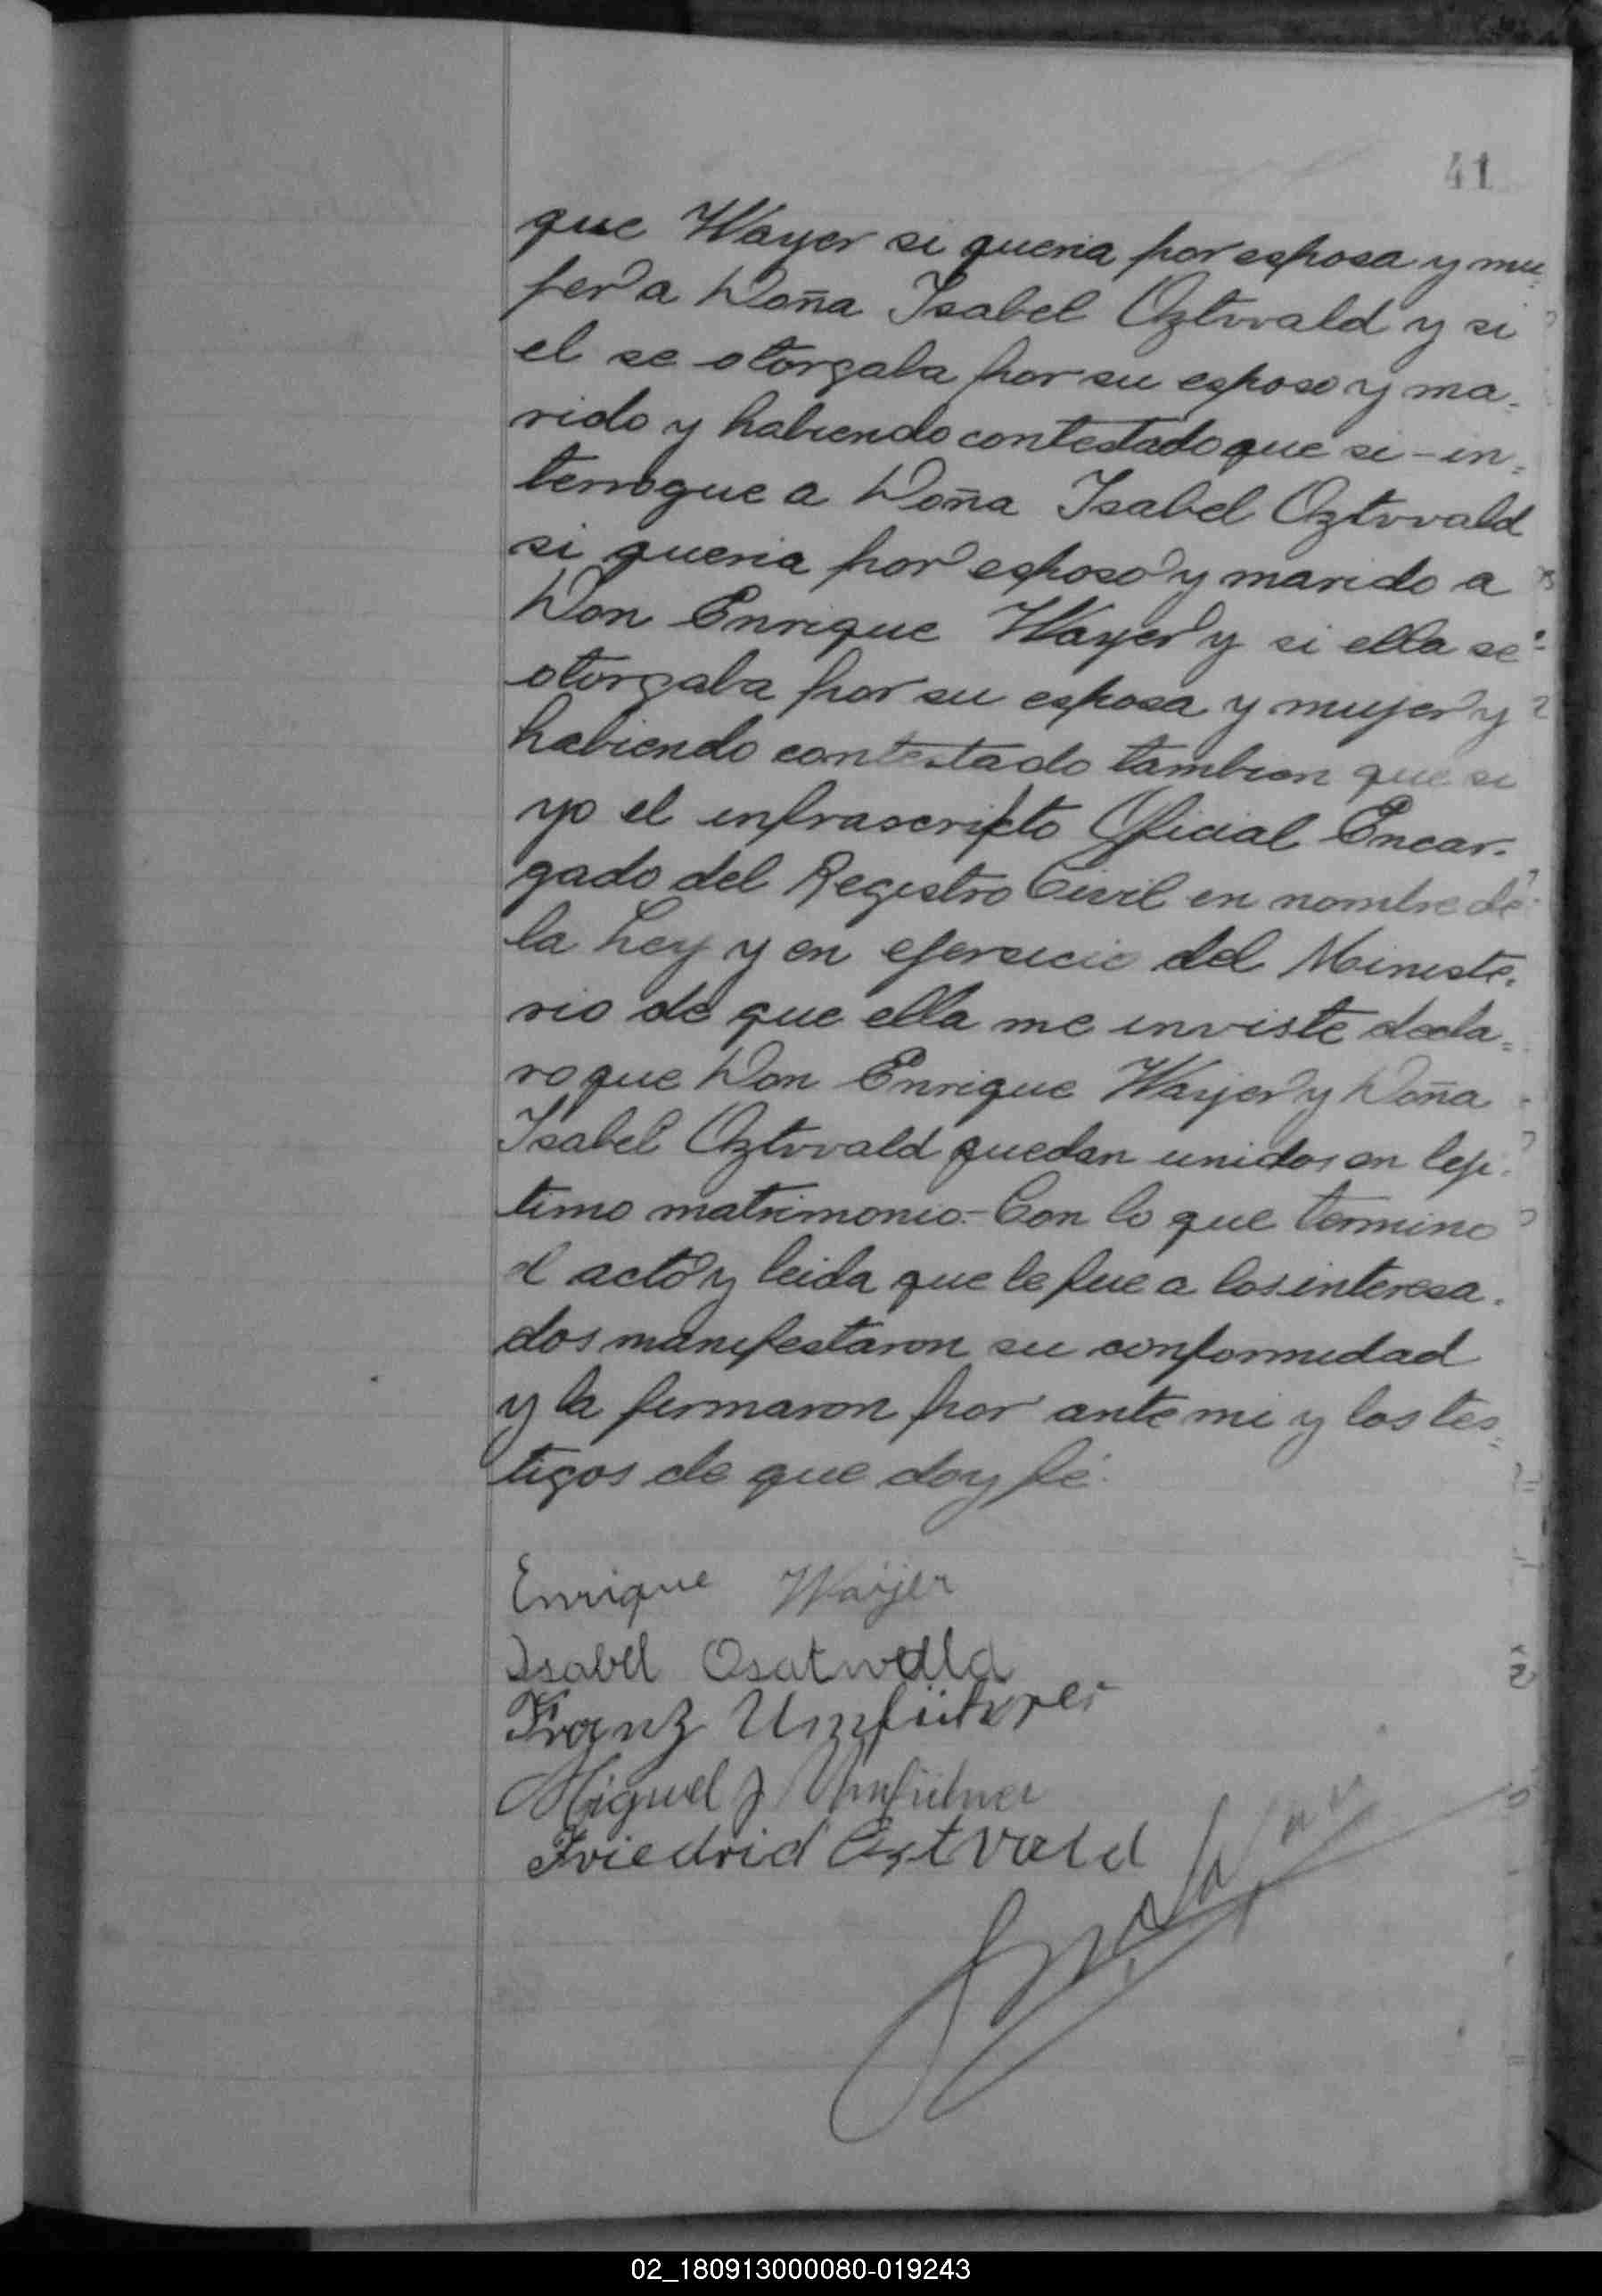 41
que Wayer si queria por esposa y mu=
jer a Doña Isabel Oztwald y si
el se otorgaba por su esposo y ma-
rido y habiendo contestado que si - in=
terrogue a Doña Isabel Oztwald
si queria por esposo y marido a
Don Enrique Wayer y si ella se
otorgaba por su esposa y mujer y
habiendo contestado tambien que si
yo el infrascripto Oficial Encar-
gado del Registro Civil en nombre de
la Ley y en ejersicio del Ministe-
rio de que ella me inviste decla=
ro que Don Enrique Wayer y Doña
Isabel Oztwald quedan unidos en leji-
timo matrimonio.- Con lo que termino
el acto y leida que le fue a los interesa-
dos manifestaron su conformidad
y la firmaron por ante mi y los tes=
tigos de que doy fé.
Enrique Wayer
Isabel Osatwalld
Franz
Miguel J
Friedrid Ostvald
02_180913000080-019243